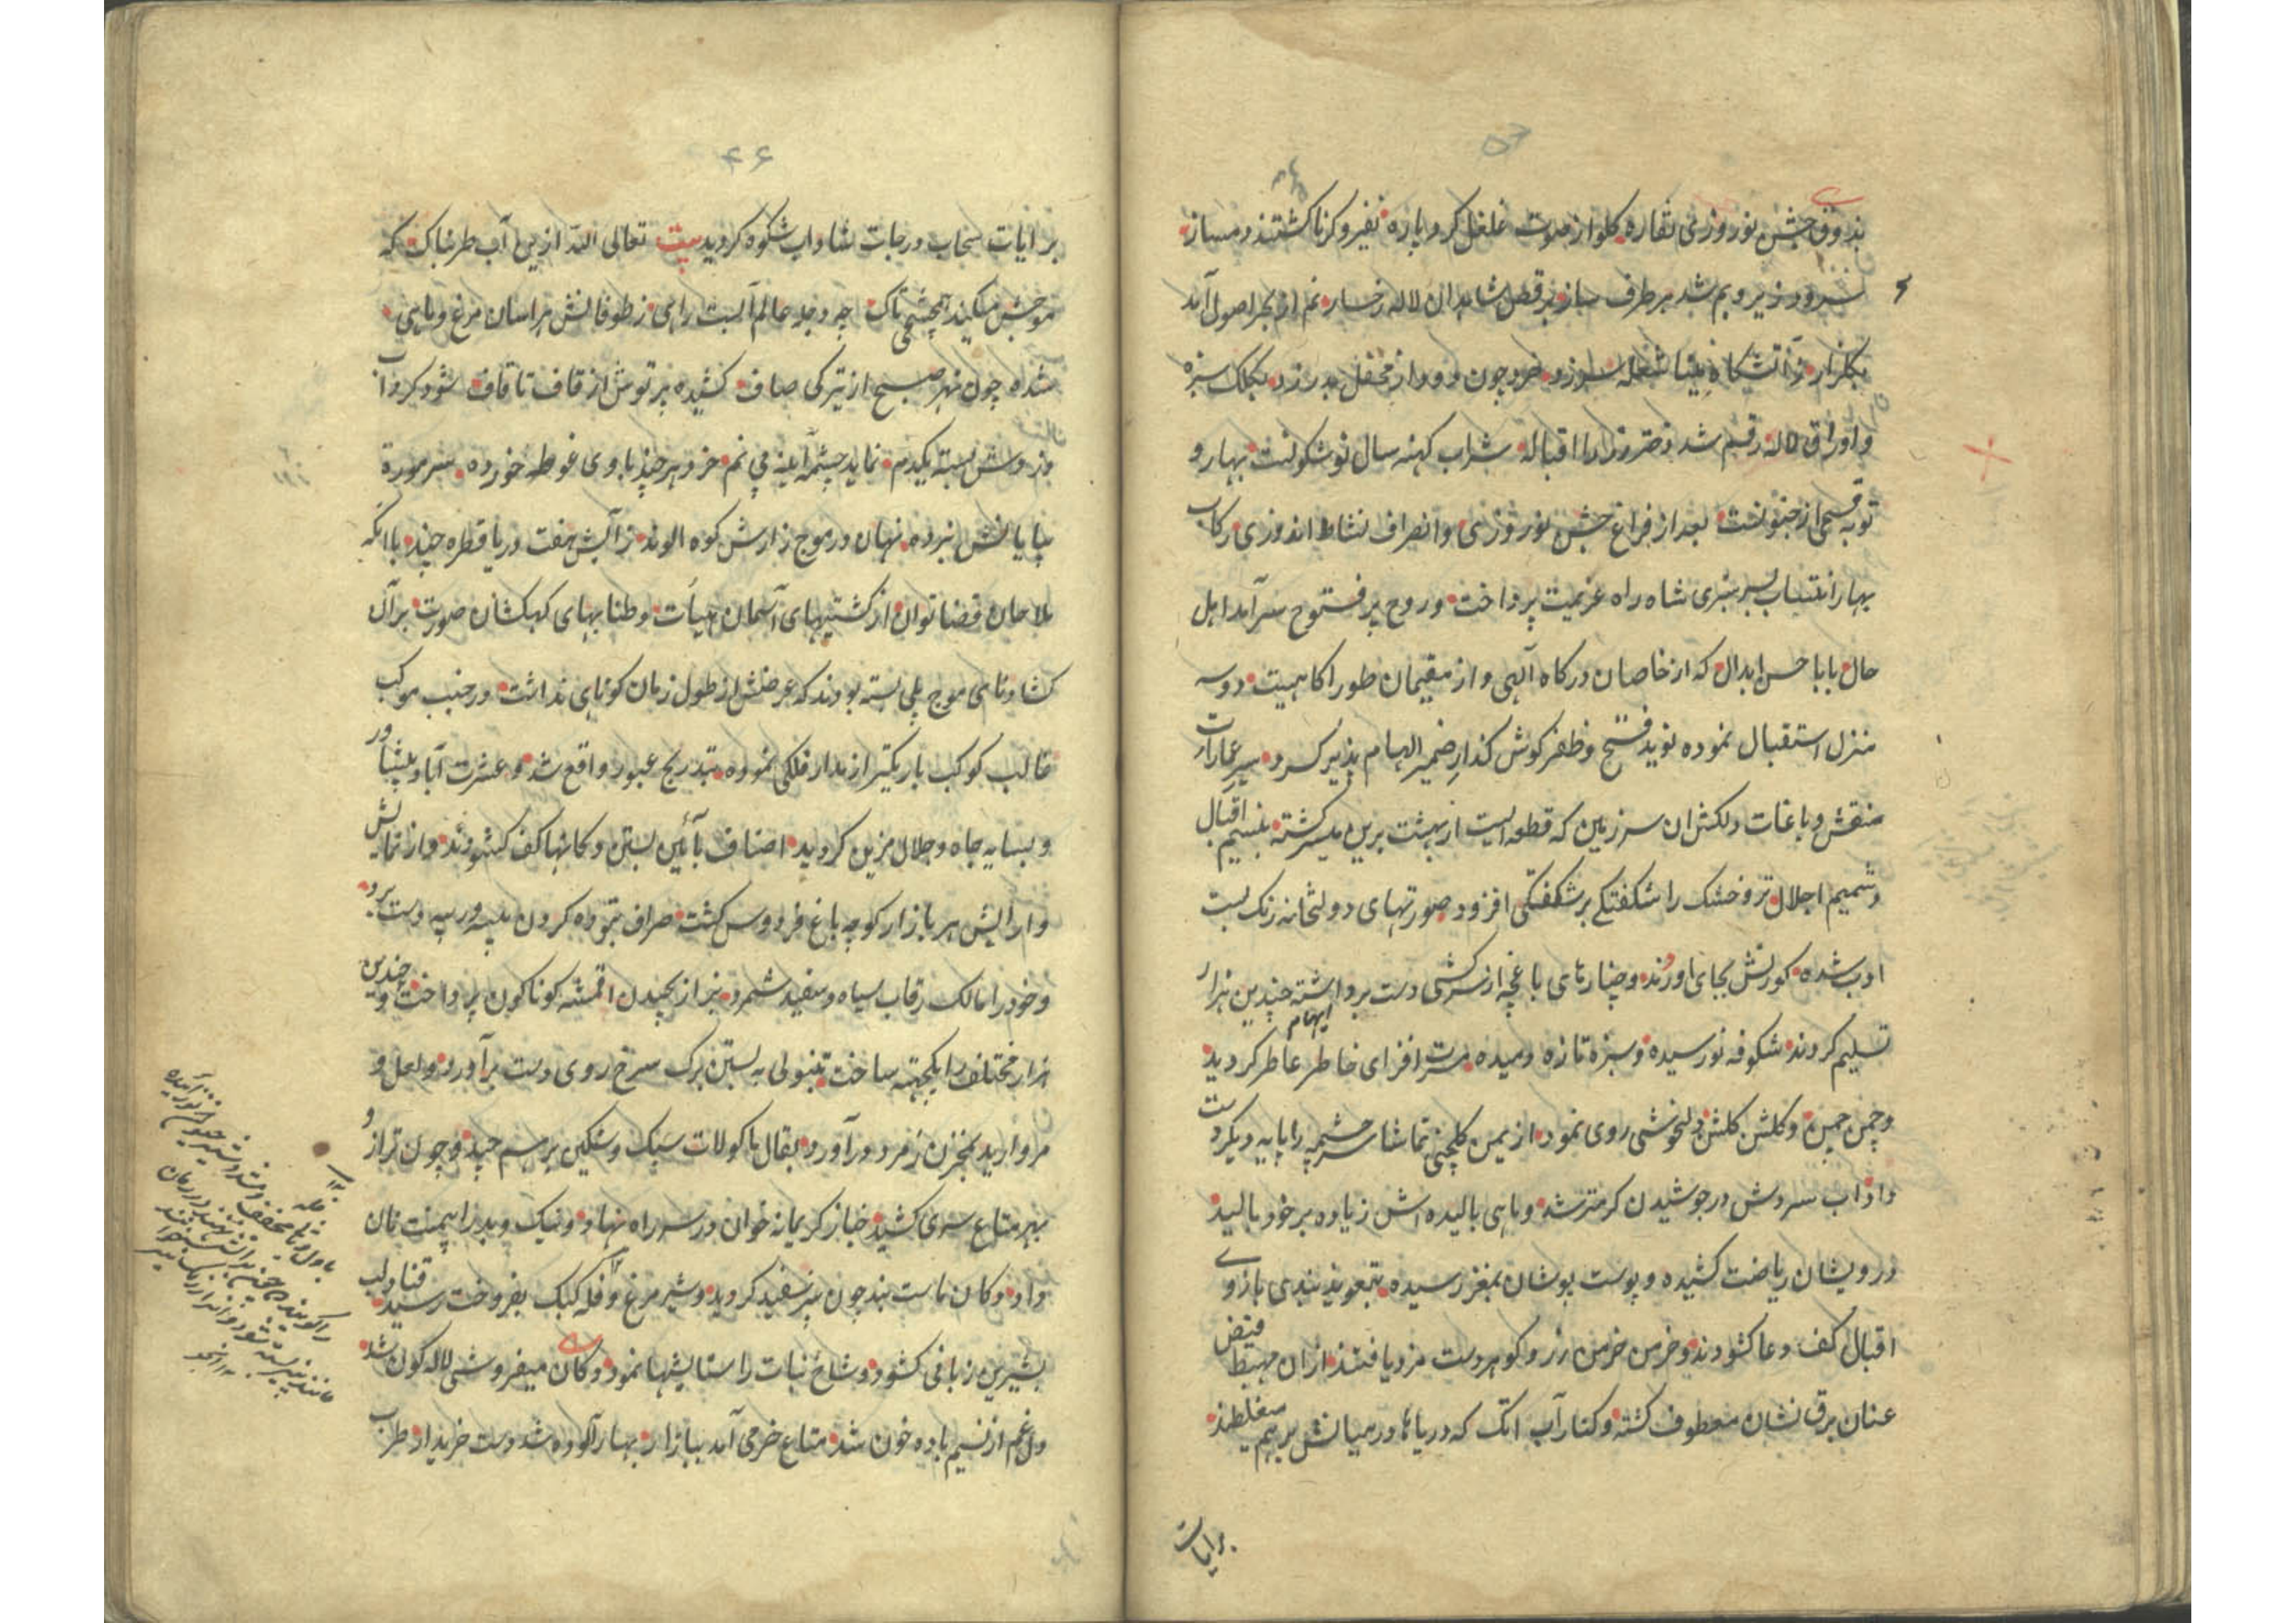 بذوق جشن نوروزی نقاره گلو از صوت غلغل کرد پاره نفیر و کرنا گشتند دمساز
سرود زیر و بم شد هر طرف ساز برقص شاهدان لاله رخسار نم از بحر اصول آمد
بگلزار ز آتشگاه مینا شعله سر زد خرد چون دود از محفل بدر زد بکلک سبزه
و اوراق لاله رقم شد دختر رز را قباله شراب کهنه سال نو شکونست بهار و
توبه قسمی از جنونست بعد از فراغ جشن نوروزی و انصراف نشاط اندوزی رکاب
بهار انتساب بسرسبزی شاه راه عزیمت پرداخت و روح پر فتوح سرآمد اهل
حال بابا حسن ابدال که از خاصان درگاه آلهی و از مقیمان طور آگاهیست دو سه
منزل استقبال نموده نوید فتح و ظفر گوش گذار ضمیر الهام پذیر کرد سیر عمارات
منقش و باغات دلکش ان سرزمین که قطعه ایست از بهشت برین میسر گشته بنسیم اقبال
و شمیم اجلال تر و خشک را شکفتگی بر شکفتگی افزود صورتهای دولتخانه رنگ بست
ادب شده کورنش بجای اوردند و چنارهای باغچه از سرکشی دست برداشته چندین هزار
تسلیم کردند شکوفه نورسیده و سبزه تازه دمیده مسرت افزای خاطر عاطر گردید
ایهام
و چمن چمن و گلشن گلشن دلخوشی روی نمود از یمن گلچینی تماشا سرچشمه را پایه دیگر دست
داد آب سردش در جوشیدن گرمتر شد و ماهی بالیده اش زیاده بر خود بالید
درویشان ریاضت کشیده و پوست پوشان بمغز رسیده بتعویذ بندی بازوی
اقبال کف دعا کشودند و خرمن خرمن زر و گوهر دست مزد یافتند از ان مهبط فیض
عنان برق نشان معطوف گشته و کنار آب اتک که دریاها در میانش بر هم میغلطند
برایات
۴۶
برایات سحاب درجات شاداب شکوه گردید بیت تعالی الله از ین آب طربناک که
موجش میکند همچشمی تاک چه دجله عالم آبست راهی ز طوفانش هراسان مرغ و ماهی
شده چون نهر صبح از تیرگی صاف کشیده پرتوش از قاف تا قاف شود گرداب
دزدش بسته یکدم نماید چشمه آینه بی نم خرد هر چند با وی غوطه خورده سر موره
بپایانش نبرده نهان در موج زارش کوه الوند ز آبش هفت دریا قطره چند با انکه
ملاحان قضا توان از کشتیهای آسمان هیأت و طنابهای کهکشان صورت بر آن
کشاد نای موج پلی بسته بودند که عرضش از طول زمان کوتاهی نداشت در جنب موکب
غالب کوکب باریکتر از مدار فلکی نموده بتدریج عبور واقع شد و عشرت آباد پیشاور
و بسایه جاه و جلال مزین گردید اصناف بآئین بستن دکانها کف کشودند و از نمایش
و ارایش هر بازار کوچه باغ فردوس گشت صراف بتوده کردن پیسه و رپیه دست برد
و خود را مالک رقاب سیاه و سفید شمرد بزاز بچیدن اقمشه گوناگون پرداخت و چندین
هزار مختلف را یکجهته ساخت تنبولی به بستن برگ سرخ روی دست برآورد و لعل و
مروارید بمخزن زمرد درآورد بقال ماکولات سبک و سنگین بر هم چید و چون ترازو
بهر متاع سری کشید خباز کریمانه خوان در سر راه نهاد و نیک و بد را بمنت نان
داد دکان ماست بند چون پنیر سفید گردید و شیر مرغ و فله کبک بفروخت رسید قناد لب
بشیرین زبانی کشود و شاخ نبات را ستایشها نمود دکان میفروشی لاله گون شد
دل غم از نسیم باده خون شد متاع خرمی آمد ببازار بهار آلوده شد دست خریدار طرب